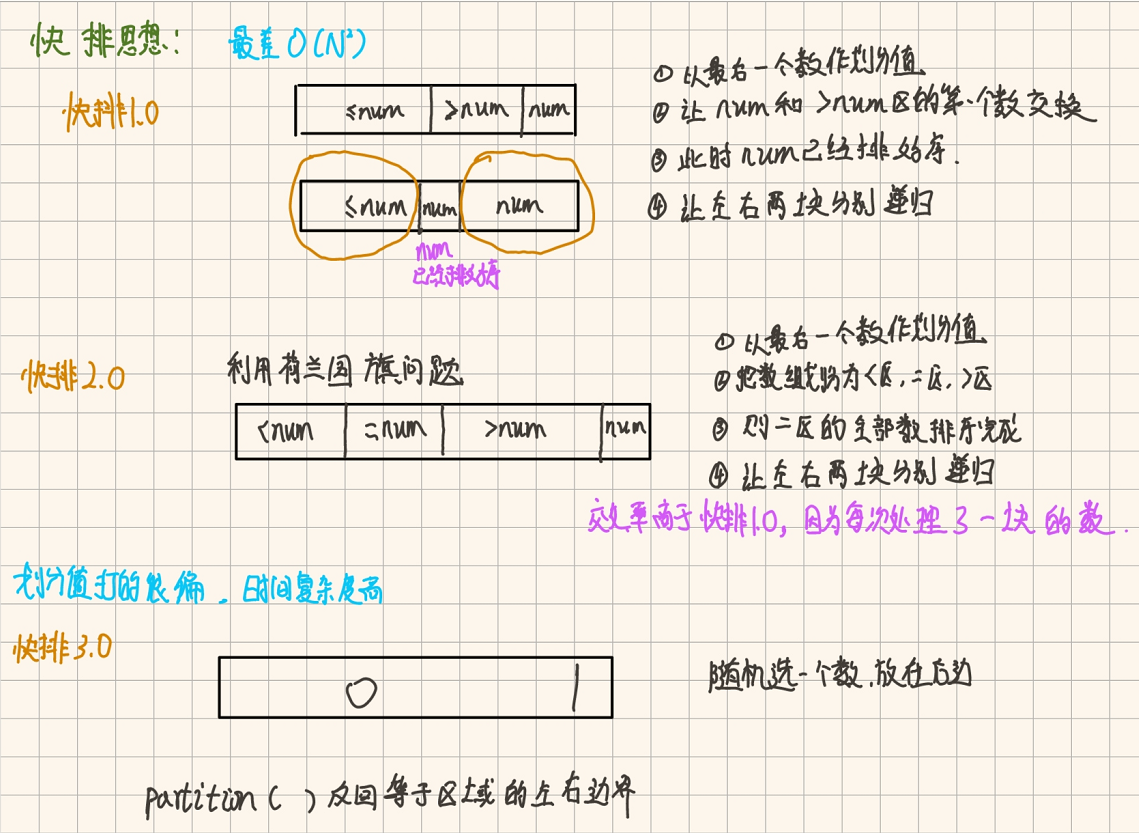 快排思想： 最差 O(N²)
快排1.0
≤num >num num
≤num num num
num
已经排好序
① 以最右一个数作划分值
② 让 num 和 >num 区的第一个数交换
③ 此时 num 已经排好序.
④ 让左右两块分别递归
快排2.0 利用荷兰国旗问题
<num =num >num num
① 以最右一个数作划分值
② 把数组划分为<区，=区，>区
③ 则=区的全部数排序完成
④ 让左右两块分别递归
效率高于快排1.0，因为每次处理了一块的数.
划分值打的很偏，时间复杂度高
快排3.0
随机选一个数，放在右边
partition( ) 返回等于区域的左右边界